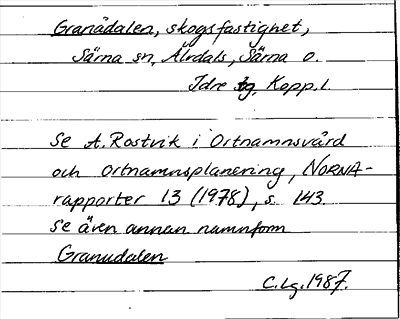 Granådalen, skogsfastighet,
Särna sn, Älvdals, Särna o.
Idre tg, Kopp.l.
Se A. Rostvik i Ortnamnsvård
och ortnamnsplanering, NORNA-
rapporter 13 (1978), s. 143.
Se även annan namnform
Granudalen
C.Lg. 1987.